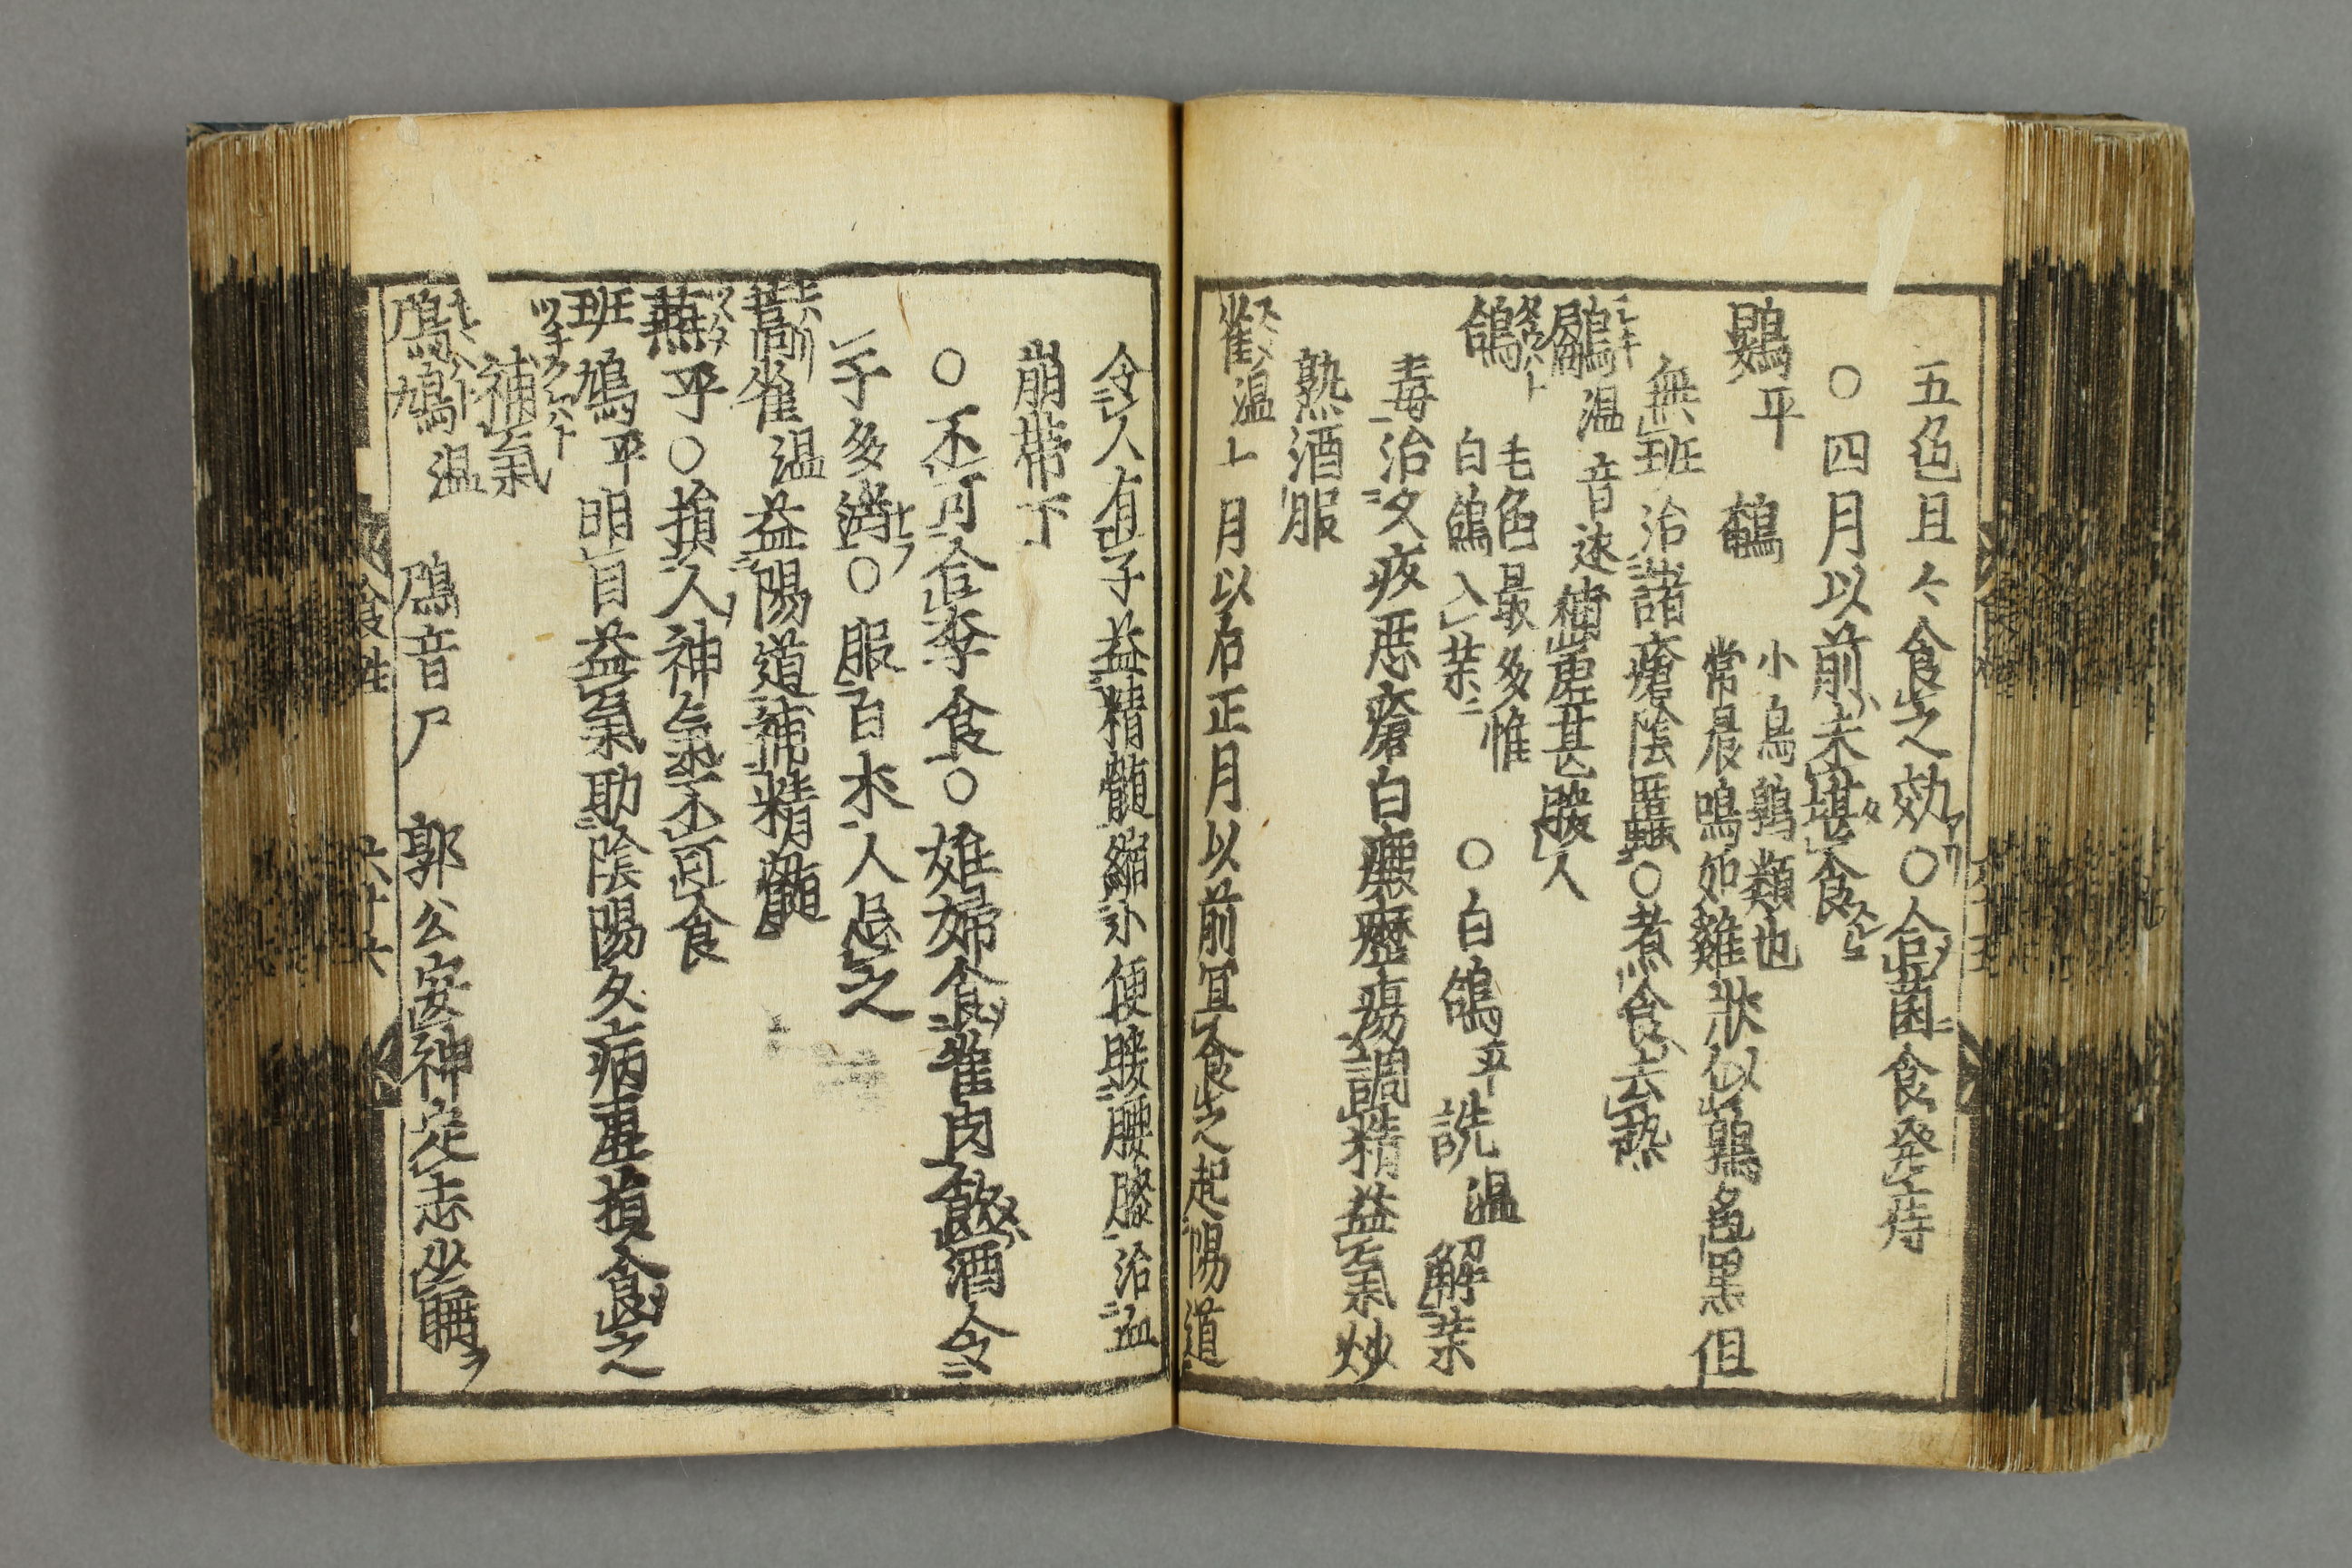 五色且々令食之効○合菌食発痔
○四月以前未堪食
鷃平 鵪 小鳥鶉類也
常晨鳴如雞状似鶉色黒但
無班治諸瘡陰䘌○煮食去熱
鸓温 音速補虚甚暖人
鴿 毛色最多惟
白鴿入薬 ○白鴿平 詵温 解薬
毒治久疥悪瘡白癜癧瘍調精益氣炒
熟酒服
雀温十月以后正月以前宜食之起陽道
令人有子益精髓縮小便暖腰膝治血
崩帯下
○不可合李食○妊婦食雀肉飲酒令
子多淫○服白朮人忌之
蒿雀温益陽道補精髓
燕平○損人神氣不可食
班鳩平明目益氣助陰陽久病虚損食之
補氣
鳲鳩温 鳲音尸 郭公安神定志少睡
食性
六十六